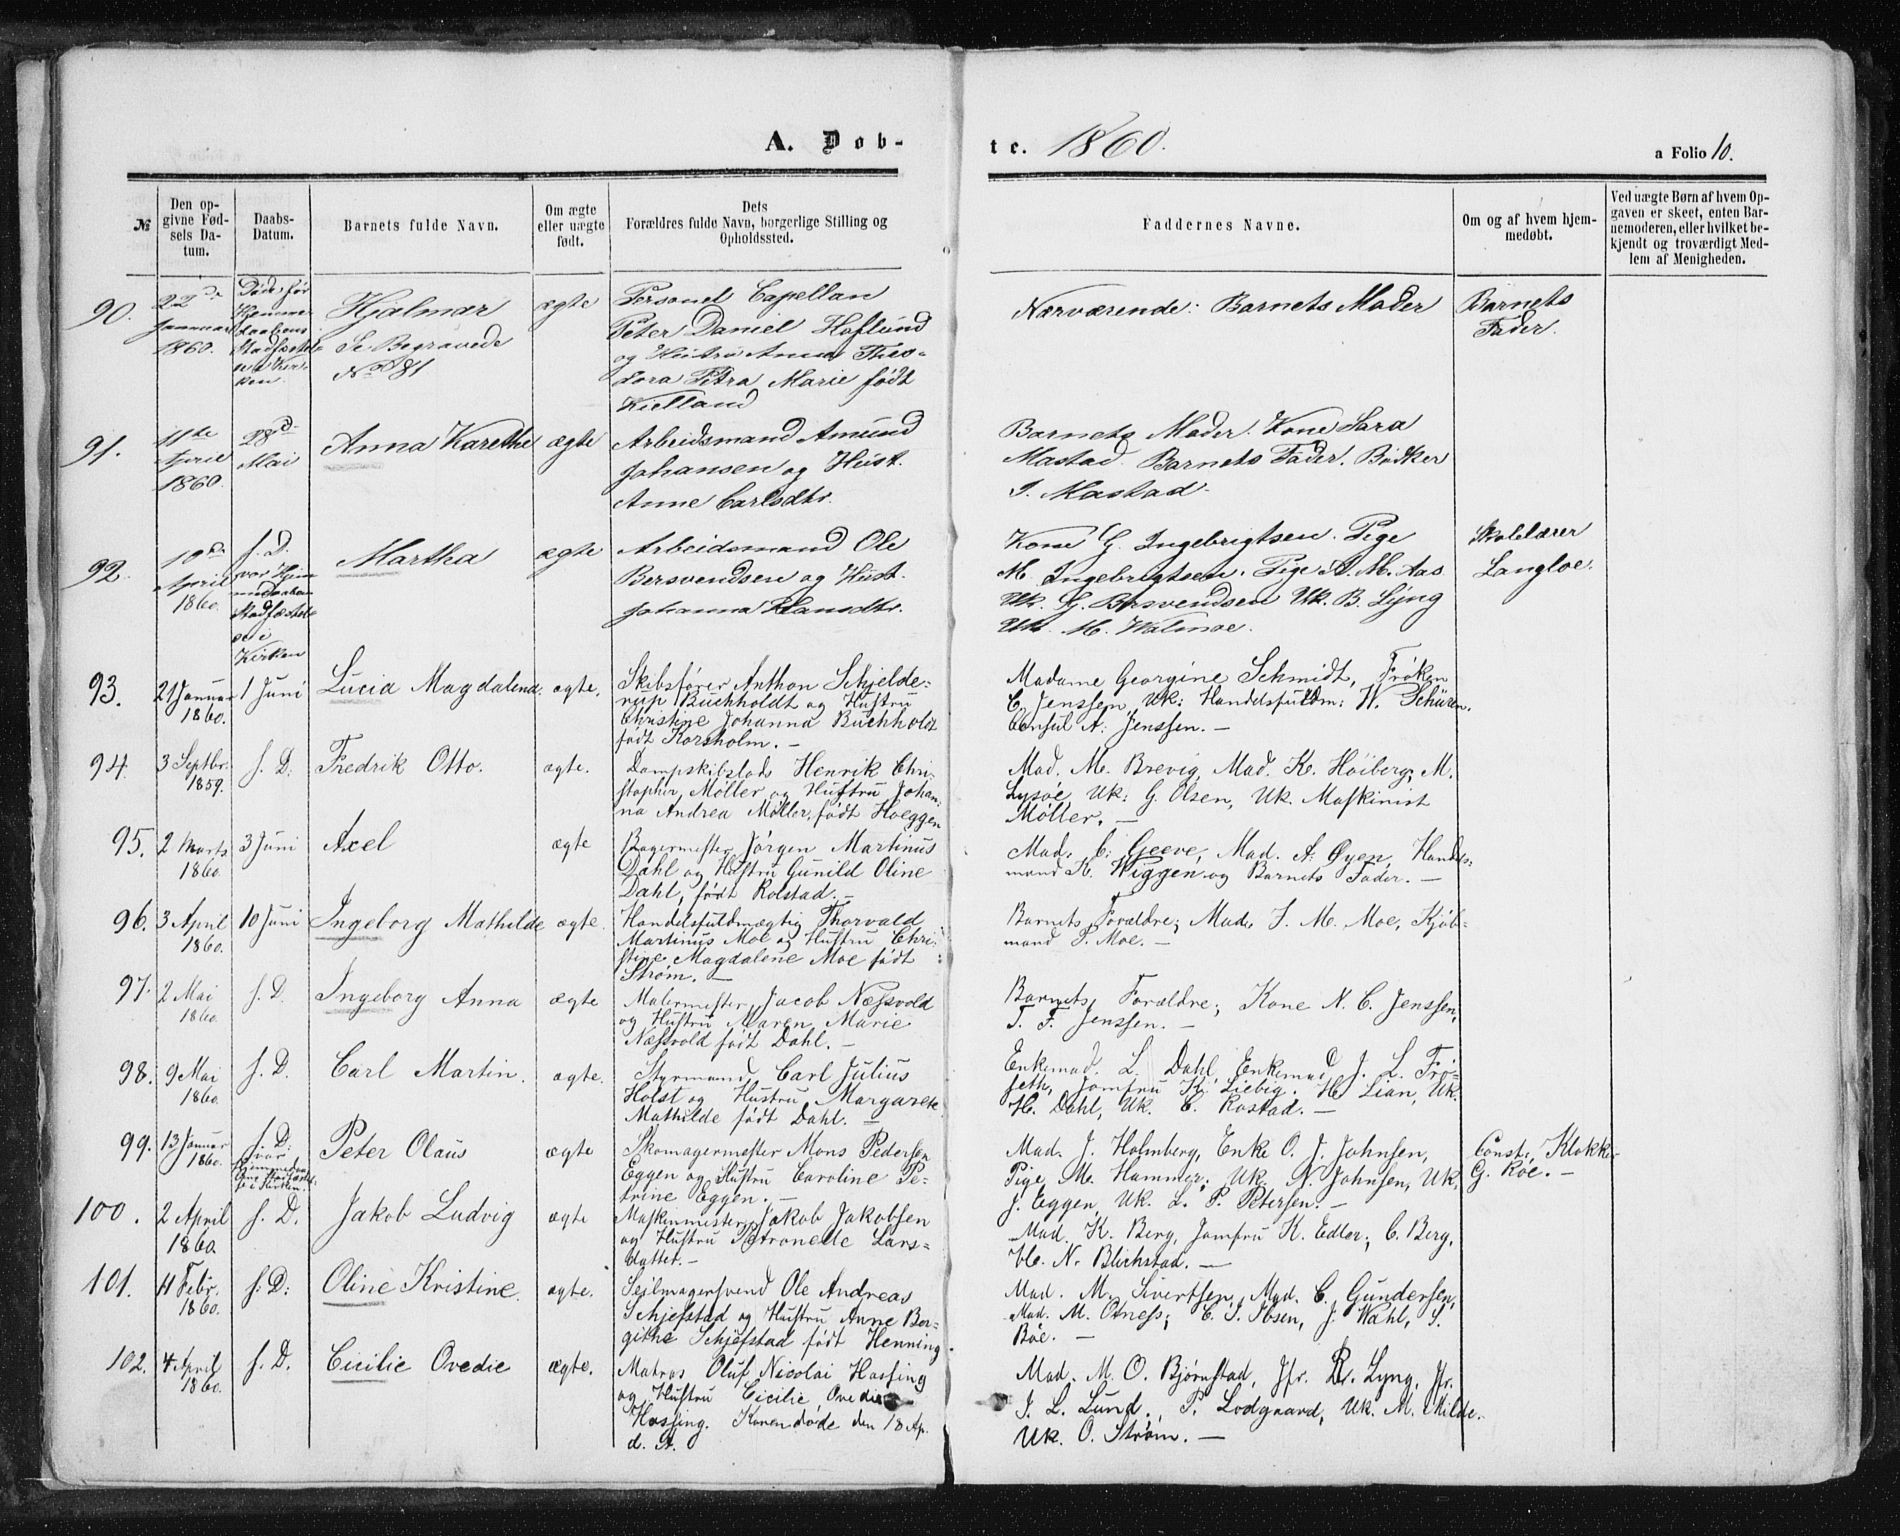 A. Døb-
te. 1860.
a Folio 10.
№
Den op-
givne Fød-
sels Da-
tum.
Daabs-
Datum.
Barnets fulde Navn.
Om ægte
eller uægte
født.
Dets
Forældres fulde Navn, borgerlige Stilling og
Opholdssted.
Faddernes Navne.
Om og af hvem hjem-
medøbt.
Ved uægte Børn af hvem Op-
gaven er skeet, enten Bar-
nemoderen, eller hvilket be-
kjendt og troværdigt Med-
lem af Menigheden.
90.
22de
Januar
1860.
Døde før
Hjemme
daabens
Stadfæstel-
se i Kir-
ken.
Hjalmar
Se Begravede
No 81
ægte
Personel Capellan
Peter Daniel Hoflund
og Hustru Anna Theo-
dora Petra Marie født
Kielland
Nærværende: Barnets Moder
Barnets
Fader.
91.
11te
April
1860.
28de
Mai
Anna Karethe
ægte
Arbeidsmand Amund
Johansen og Hust.
Anne Carlsdtr.
Barnets Moder. Kone Sara
Mastad. Barnets Fader. Bødker
J. Mastad.
92.
10de
April
1860.
s. D.
var Hjem
medaaben
Stadfæstet
i
Kirken
Martha
ægte
Arbeidsmand Ole
Bersvendsen og Hust.
Johanna Hansdtr.
Kone G. Ingebrigtsen. Pige
M. Ingebrigtsen. Pige A. M. Aas
Uk. G. Bersvendsen Uk. B. Lyng
Uk. M. Walmoe.
Skolelærer
Langloe.
93.
21 Januar
1860.
1 Juni
Lucia Magdalena.
ægte.
Skibsfører Anthon Schjelde-
rup Buchholdt og Hustru
Christine Johanna Buchholdt
født Korsholm. —
Madame Georgine Schmidt, Frøken
C. Jenssen, Uk: Handelsfuldm: W. Schüren.
Consul A. Jenssen. —
94.
3 Septbr.
1859.
s. D.
Fredrik Otto.
ægte.
Dampskibslods Henrik Chri-
stopher Møller og Hustru Johan-
na Andrea Møller, født Hoeggen
Mad. M. Brevig, Mad. K. Høiberg, M.
Lysøe, Uk: G. Olsen, Uk. Maskinist
Møller. —
95.
2 Marts
1860.
3 Juni
Axel
ægte
Bagermester Jørgen Martinus
Dahl og Hustru Gunild Oline
Dahl, født Rolstad. —
Mad. C. Greve, Mad. A. Øyen, Handels-
mand H. Wiggen og Barnets Fader. —
96.
3 April
1860.
10 Juni
Ingeborg Mathilde
ægte.
Handelsfuldmægtig Thorvald
Martinus Moe og Hustru Chri-
stine Magdalene Moe født
Strøm. —
Barnets Forældre; Mad. J. M. Moe, Kjøb-
mand P. Moe. —
97.
2 Mai
1860.
s. D.
Ingeborg Anna
ægte
Malermester Jacob Næssvold
og Hustru Maren Marie
Næssvold født Dahl. —
Barnets Forældre; Kone N. C. Jenssen,
T. F. Jenssen. —
98.
9 Mai
1860.
s. D.
Carl Martin.
ægte.
Styrmand Carl Julius
Holst og Hustru Margarete
Mathilde født Dahl. —
Enkemad. L. Dahl, Enkemad J. L. Frø-
seth, Jomfru K. Liebig. H. Lian, Uk.
H. Dahl, Uk. C. Rostad. —
99.
13 Januar
1860.
s. D.
var
Peter Olaus
ægte
Skomagermester Mons Pedersen
Eggen og Hustru Caroline Pe-
trine Eggen. —
Mad. J. Holmberg, Enke O. J. Johnsen,
Pige M. Hammer; Uk. N. Johnsen, Uk.
J. Eggen, Uk. L. P. Petersen. —
Const. Klokker
G. Roe. —
100.
2 April
1860.
s. D.
Jakob Ludvig
ægte
Maskinmester Jakob Jakobsen
og Hustru Petronelle Lars-
datter. —
Mad. K. Berg, Jomfru K. Edler; C. Berg,
N. Blichstad. —
101.
4 Febr.
1860.
s. D:
Oline Kristine.
ægte.
Seilmagersvend Ole Andreas
Schjefstad og Hustru Anne Ber-
githe Schjefstad født Henning.
Mad. M. Sivertsen, Mad. C. Gundersen,
Mad. M. Otness; C. J. Ibsen, J. Wahl, S.
Bøe. —
102.
4 April
1860.
s. D.
Cicilie Ovedie
ægte.
Matros Oluf Nicolai Hassing
og Hustru Cicilie Ovedie
Hassing. Konen døde den 18 Ap.
d. A.
Mad. M. O. Bjørnstad, Jfr. Lyng, Jfr.
J. L. Lund, P. Lodgaard, Uk. M. Milde.
Uk. O. Strøm. —